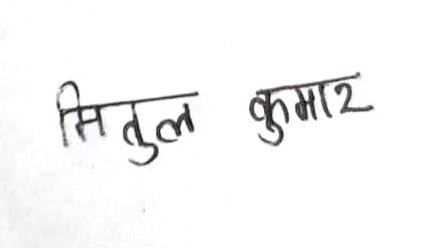 मितुल कुमार